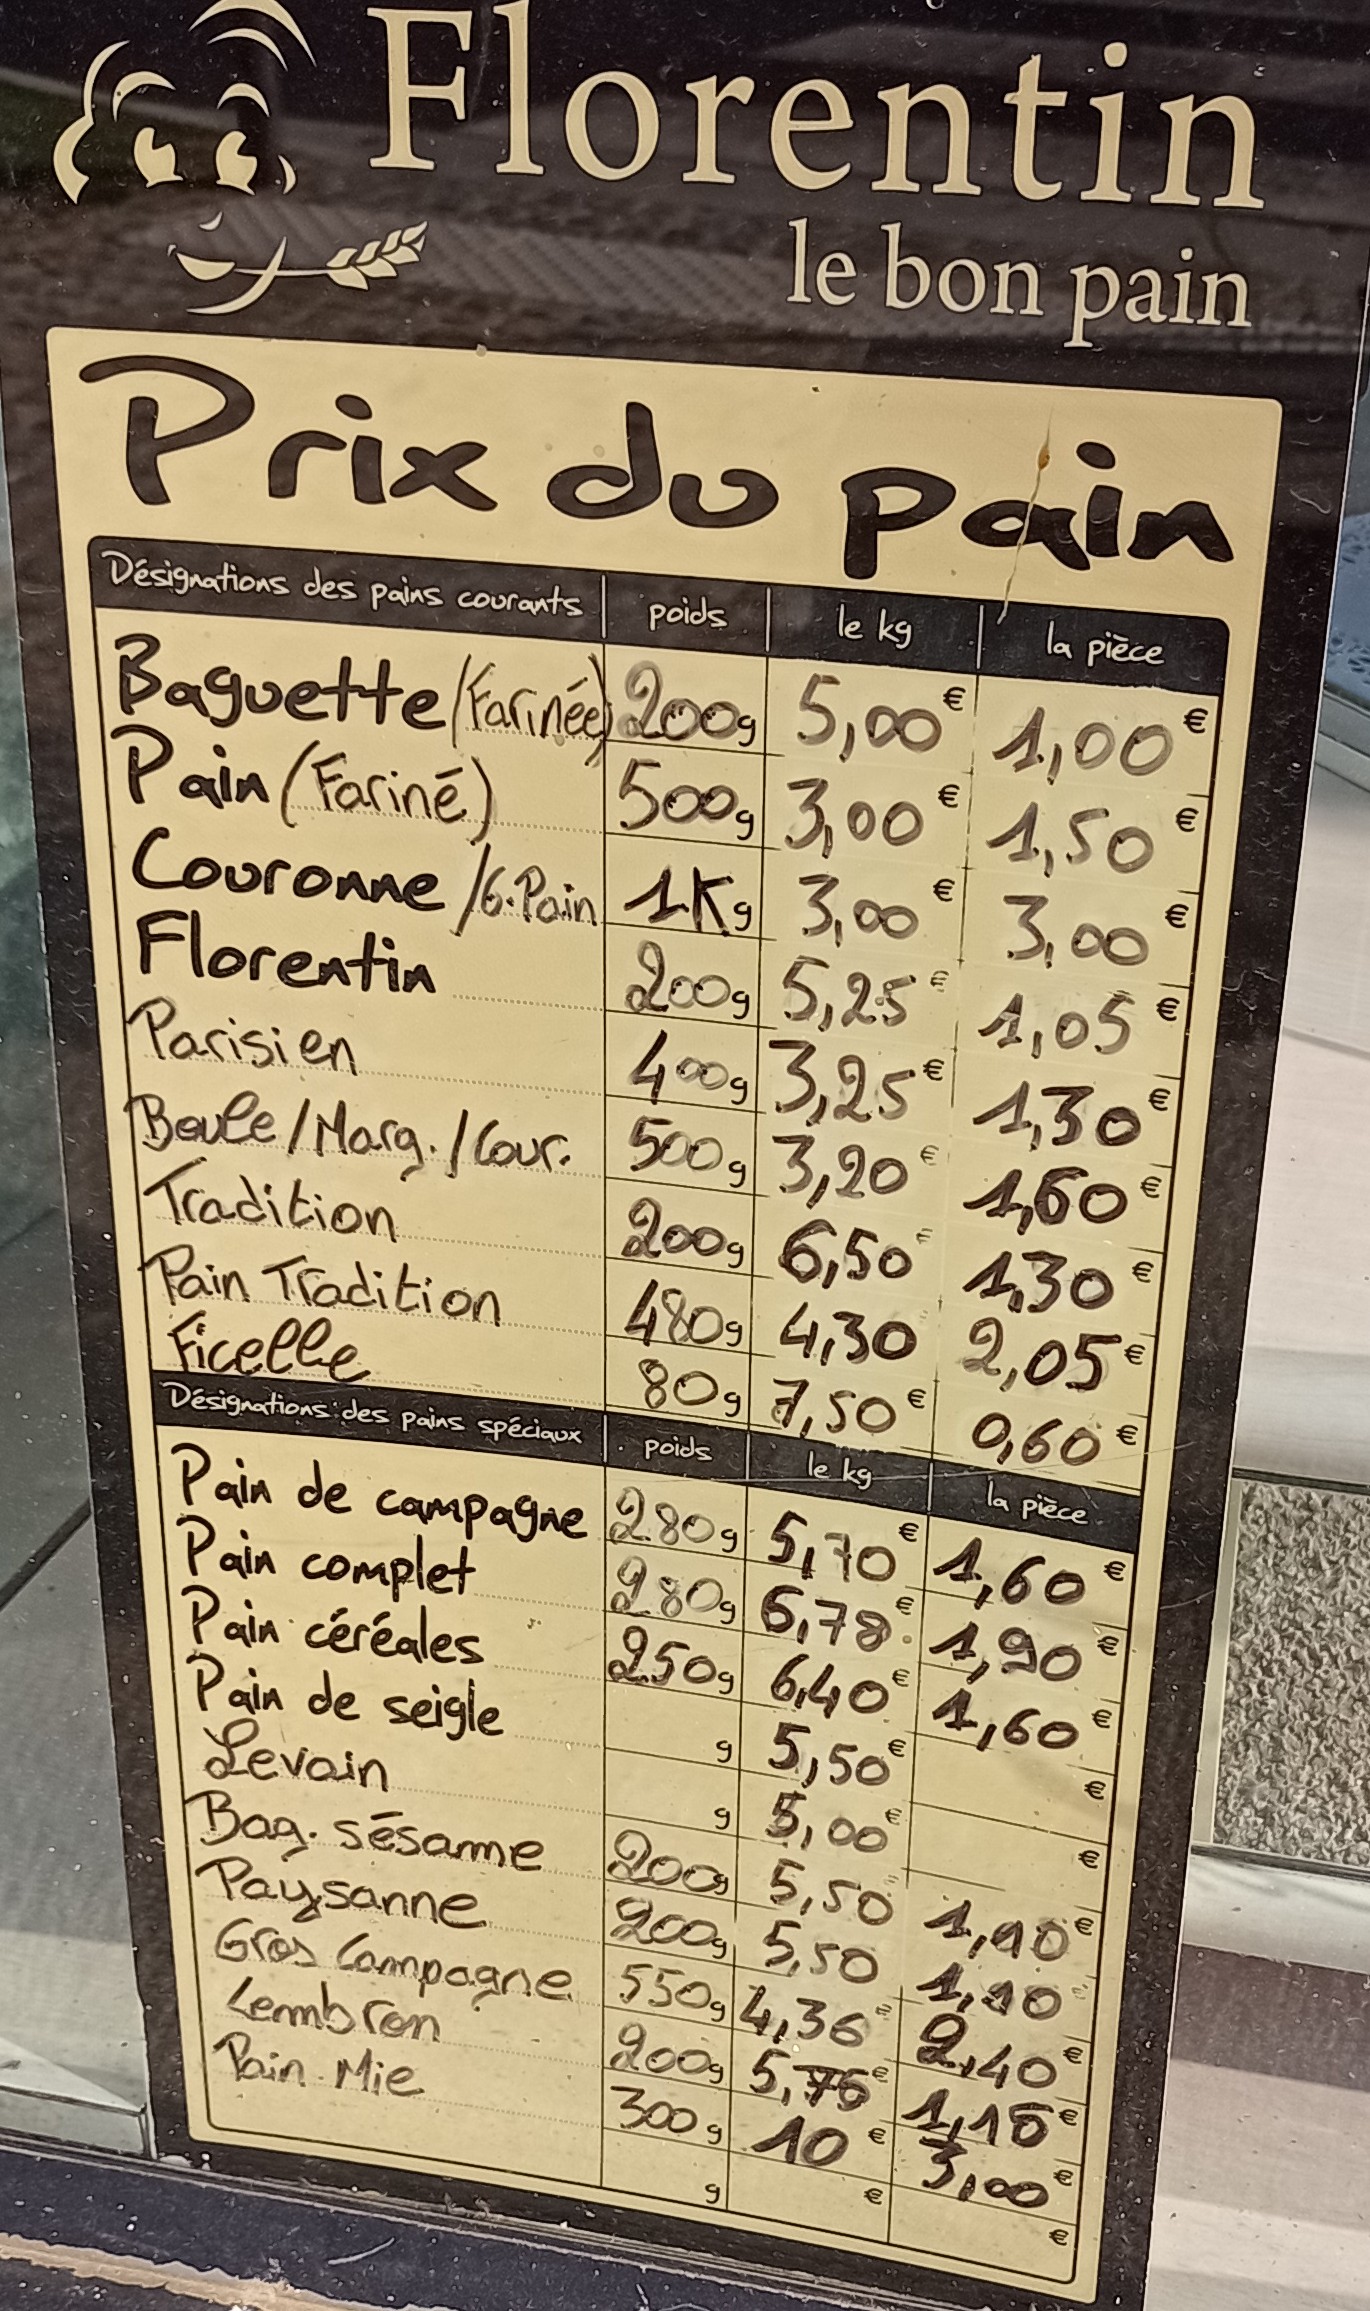 Florentin
le bon pain
Prix du pain
Désignations des pains courants poids le kg la pièce
Baguette (Farinée) 200g 5,00€ 1,00€
Pain (Fariné) 500g 3,00€ 1,50€
Couronne/G.Pain 1Kg 3,00€ 3,00€
Florentin 200g 5,25€ 1,05€
Parisien 400g 3,25€ 1,30€
Boule/Marg./Cour. 500g 3,20€ 1,60€
Tradition 200g 6,50€ 1,30€
Pain Tradition 480g 4,30 2,05€
Ficelle 80g 7,50€ 0,60€
Désignations des pains spéciaux poids le kg la pièce
Pain de campagne 280g 5,70€ 1,60€
Pain complet 280g 6,78€ 1,90€
Pain céréales 250g 6,40€ 1,60€
Pain de seigle g 5,50€ €
Levain g 5,00€ €
Bag. sésame 200g 5,50 1,10€
Paysanne 200g 5,50 1,10€
Gros Campagne 550g 4,36€ 2,40€
Lembron 200g 5,75€ 1,15€
Pain Mie 300g 10€ 3,00€
g € €